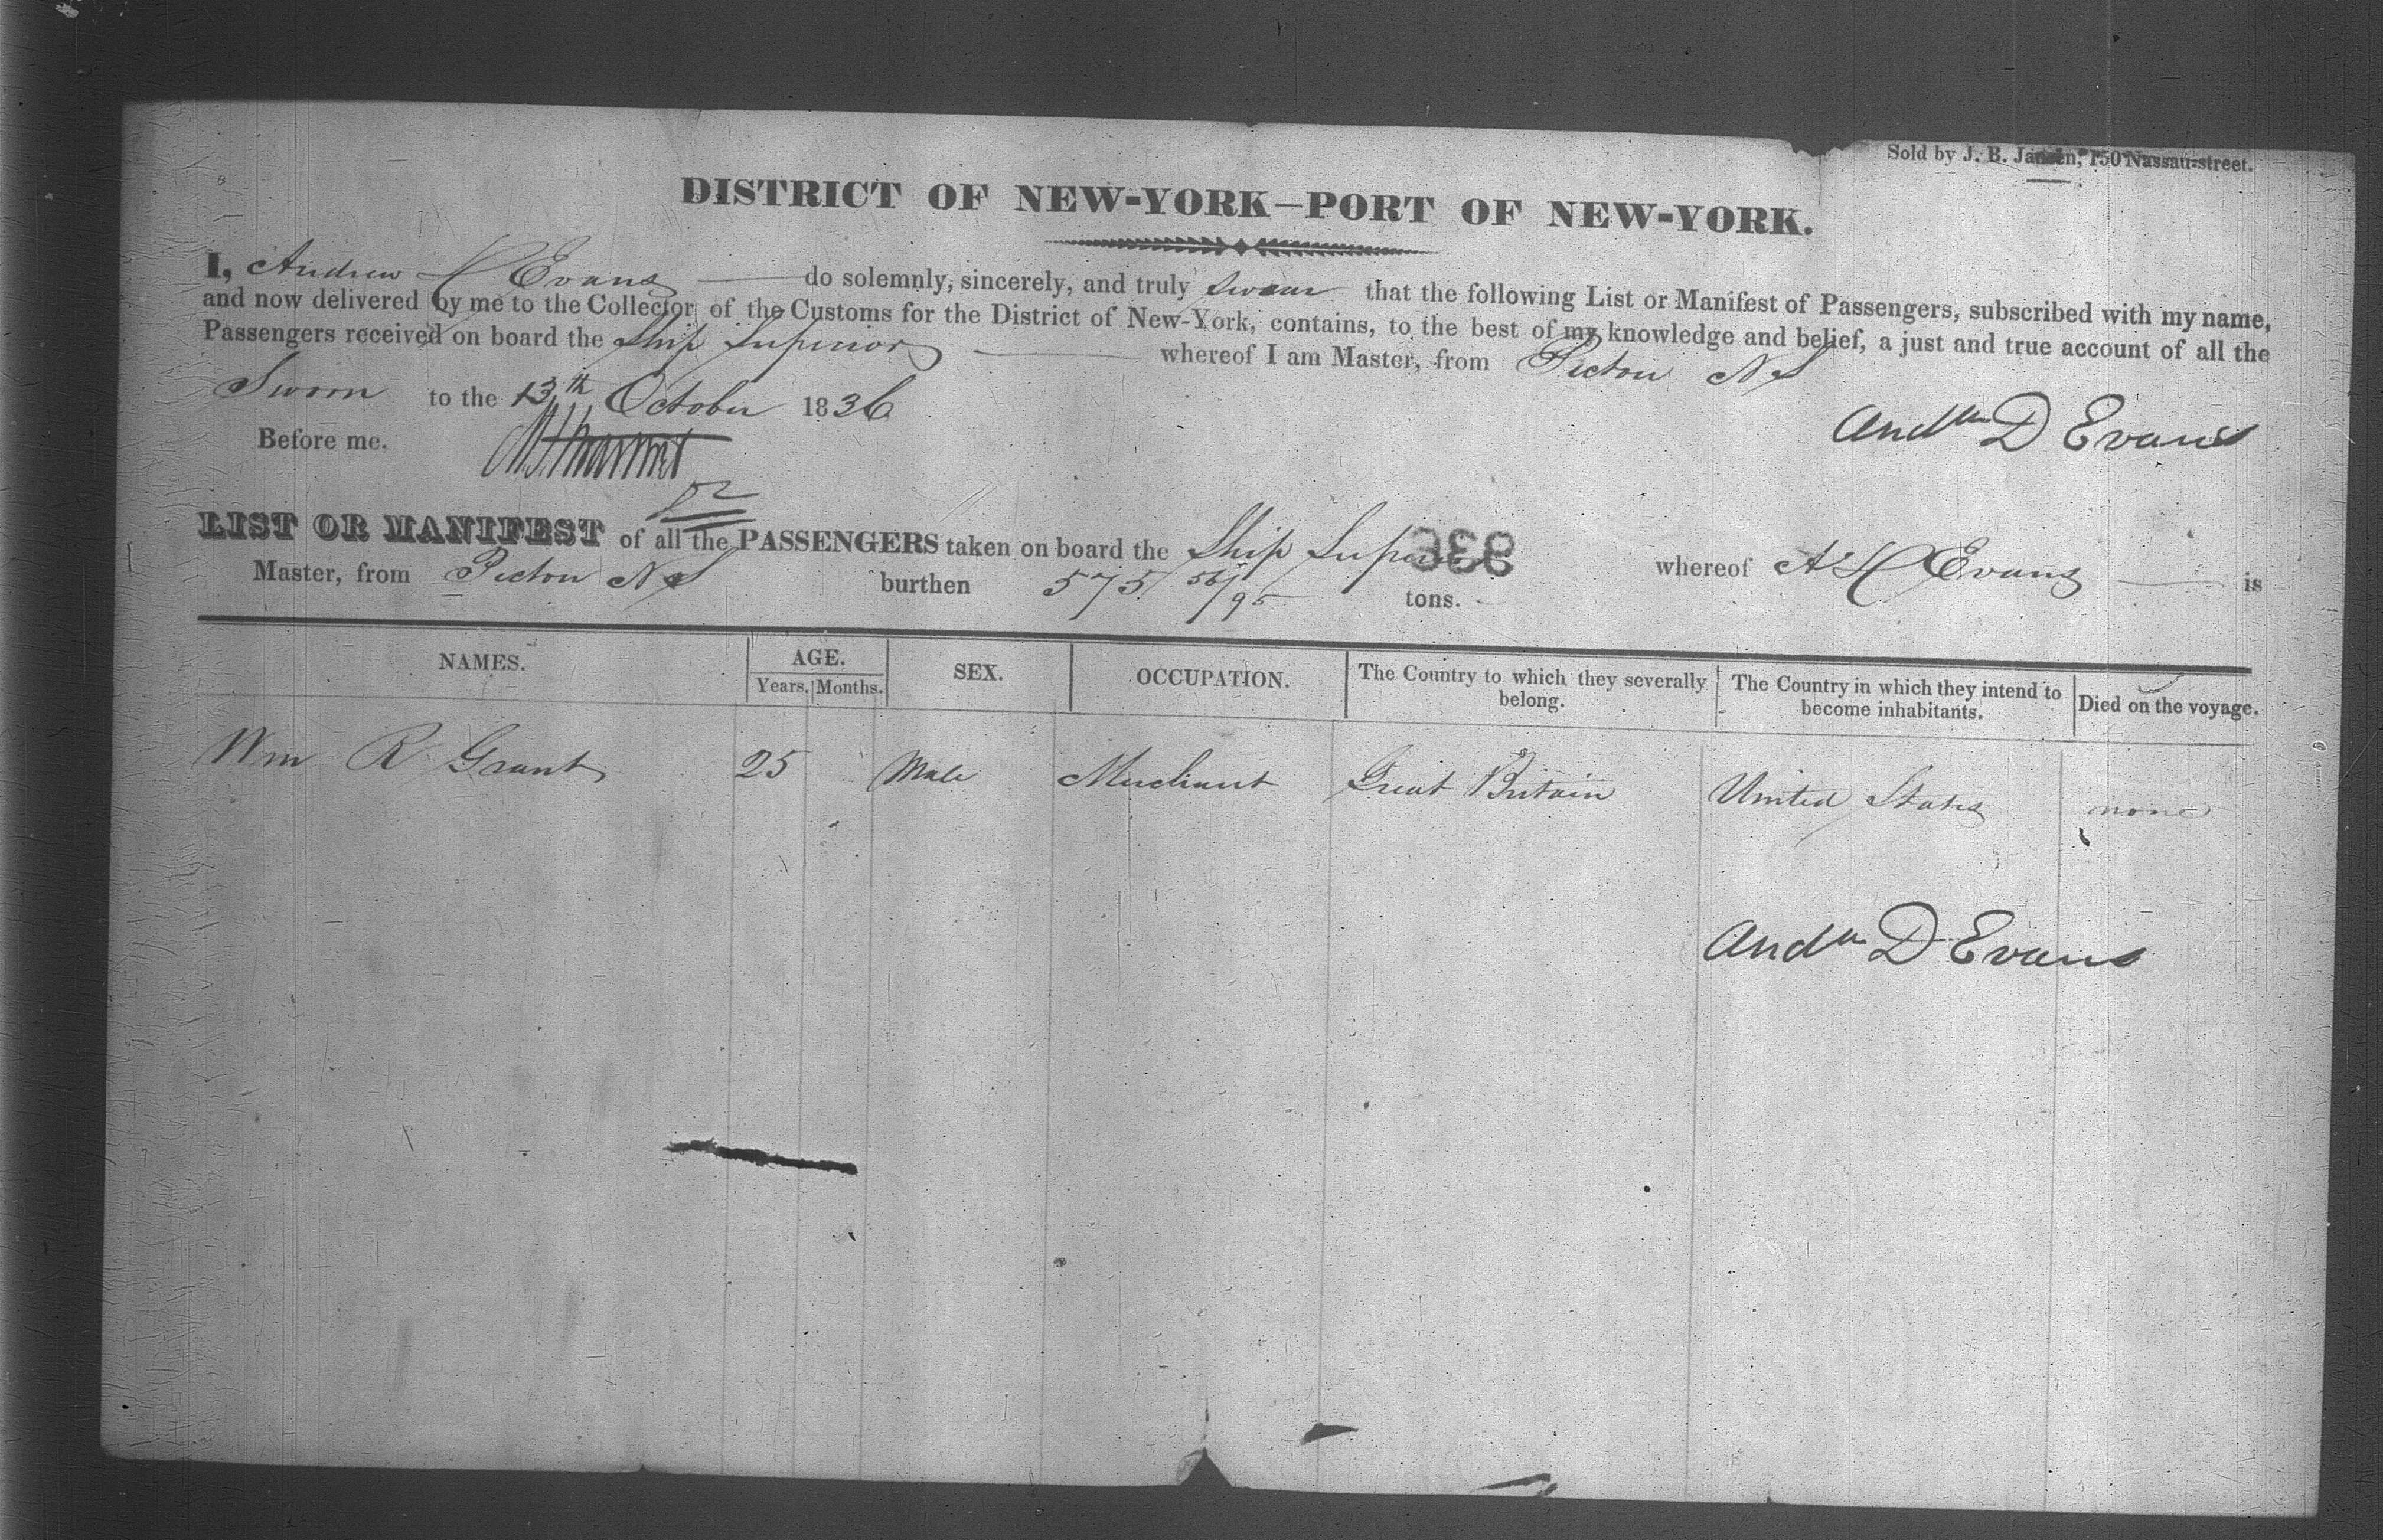 Sold by J. B. Jansen, 150 Nassau-street.
DISTRICT OF NEW-YORK—PORT OF NEW-YORK.
I, Andrew H Evans do solemnly, sincerely, and truly swear that the following List or Manifest of Passengers, subscribed with my name,
and now delivered by me to the Collector of the Customs for the District of New-York, contains, to the best of my knowledge and belief, a just and true account of all the
Passengers received on board the Ship Superior whereof I am Master, from Pictou N S
Sworn to the 13th October 1836
Andw D Evans
Before me.
LIST OR MANIFEST of all the PASSENGERS taken on board the Ship Superior whereof A H Evans is
Master, from Pictou N S burthen 575 56/95 tons.
938
NAMES. AGE. Years. Months. SEX. OCCUPATION. The Country to which they severally belong. The Country in which they intend to become inhabitants. Died on the voyage.
Wm R Grant 25 Male Merchant Great Britain United States none
Andw D Evans